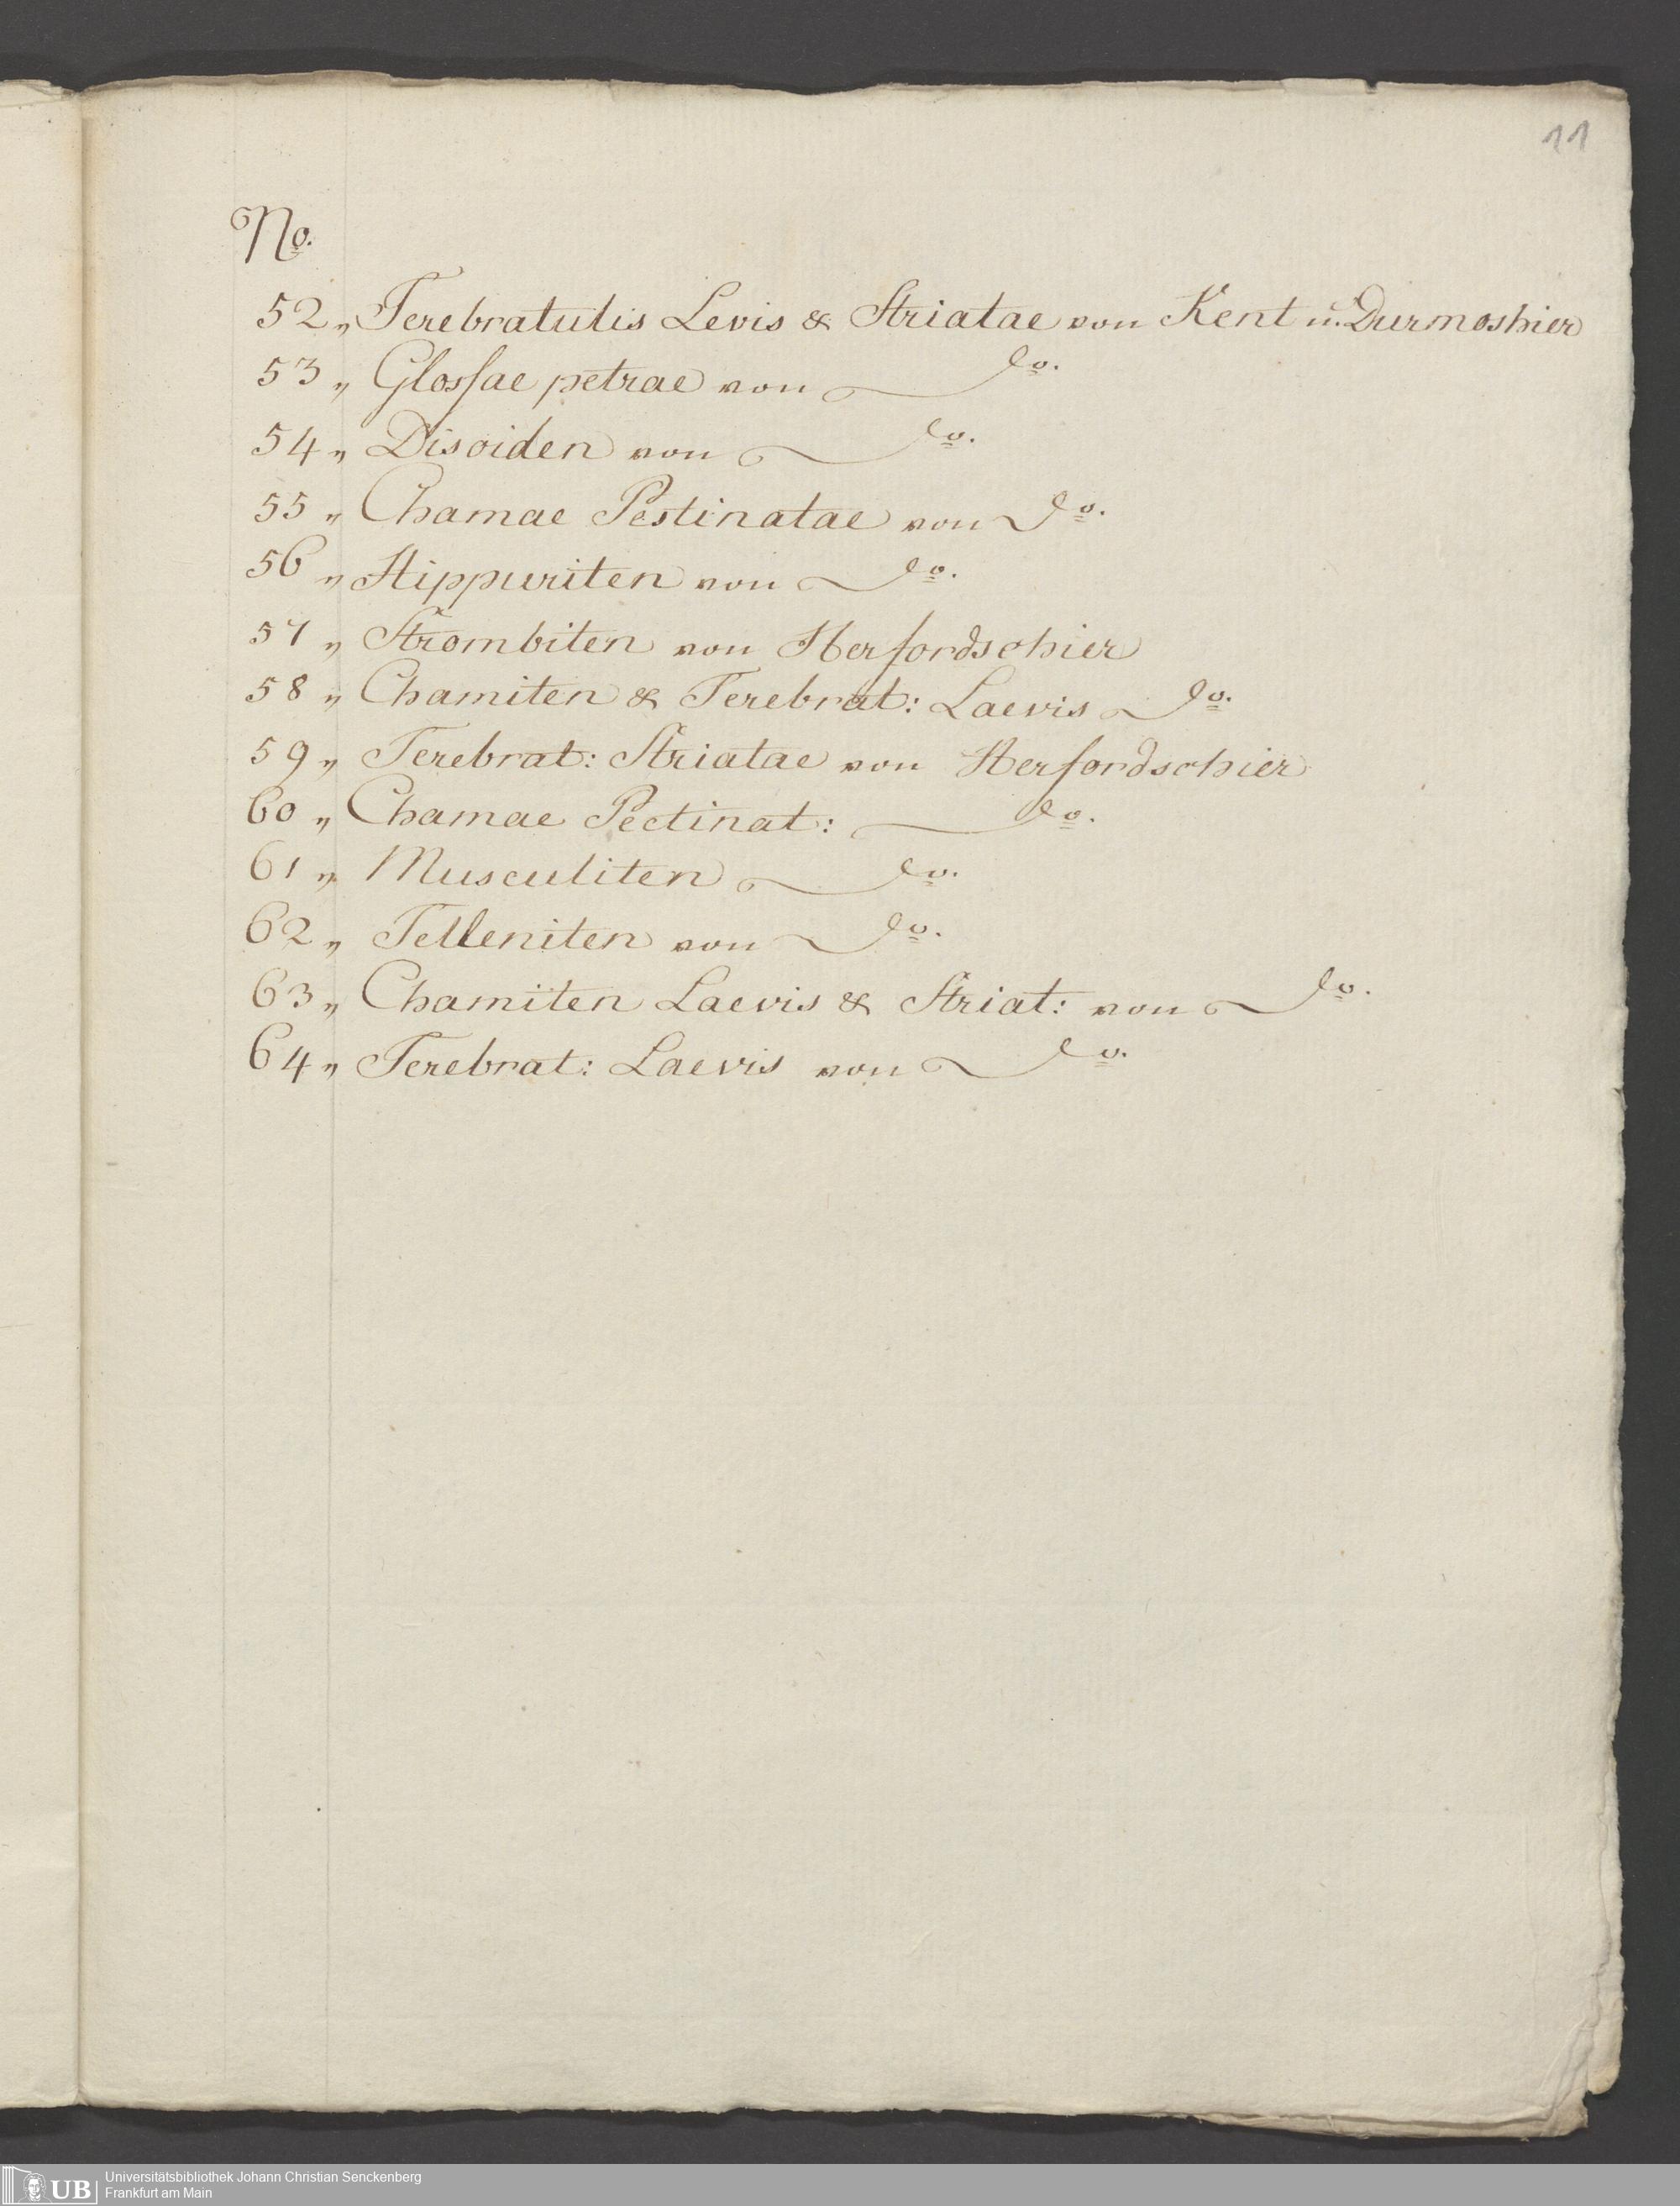 11
No.
52 „ Terebratulis Levis & Striatae von Kent u. Durmoshier
53 „ Glossae petrae von do.
54 „ Disoiden von do.
55 „ Chamae Pestinatae von do.
56 „ Hippuriten von do.
57 „ Strombiten von Herfordschier
58 „ Chamiten & Terebrat: Laevis do.
59 „ Terebrat: Striatae von Herfordschier
60 „ Chamae Pectinat: do.
61 „ Musculiten do.
62 „ Telleniten von do.
63 „ Chamiten Laevis & Striat: von do.
64 „ Terebrat: Laevis von do.
UB Universitätsbibliothek Johann Christian Senckenberg
Frankfurt am Main